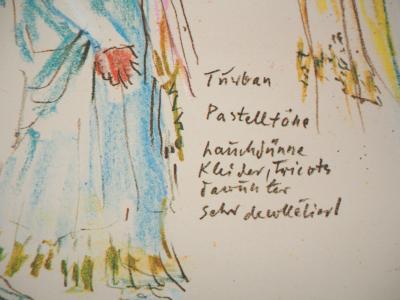 Turban
Pastelltöne
hauchdünne
Kleider, Tricots
darunter
sehr dekolletiert